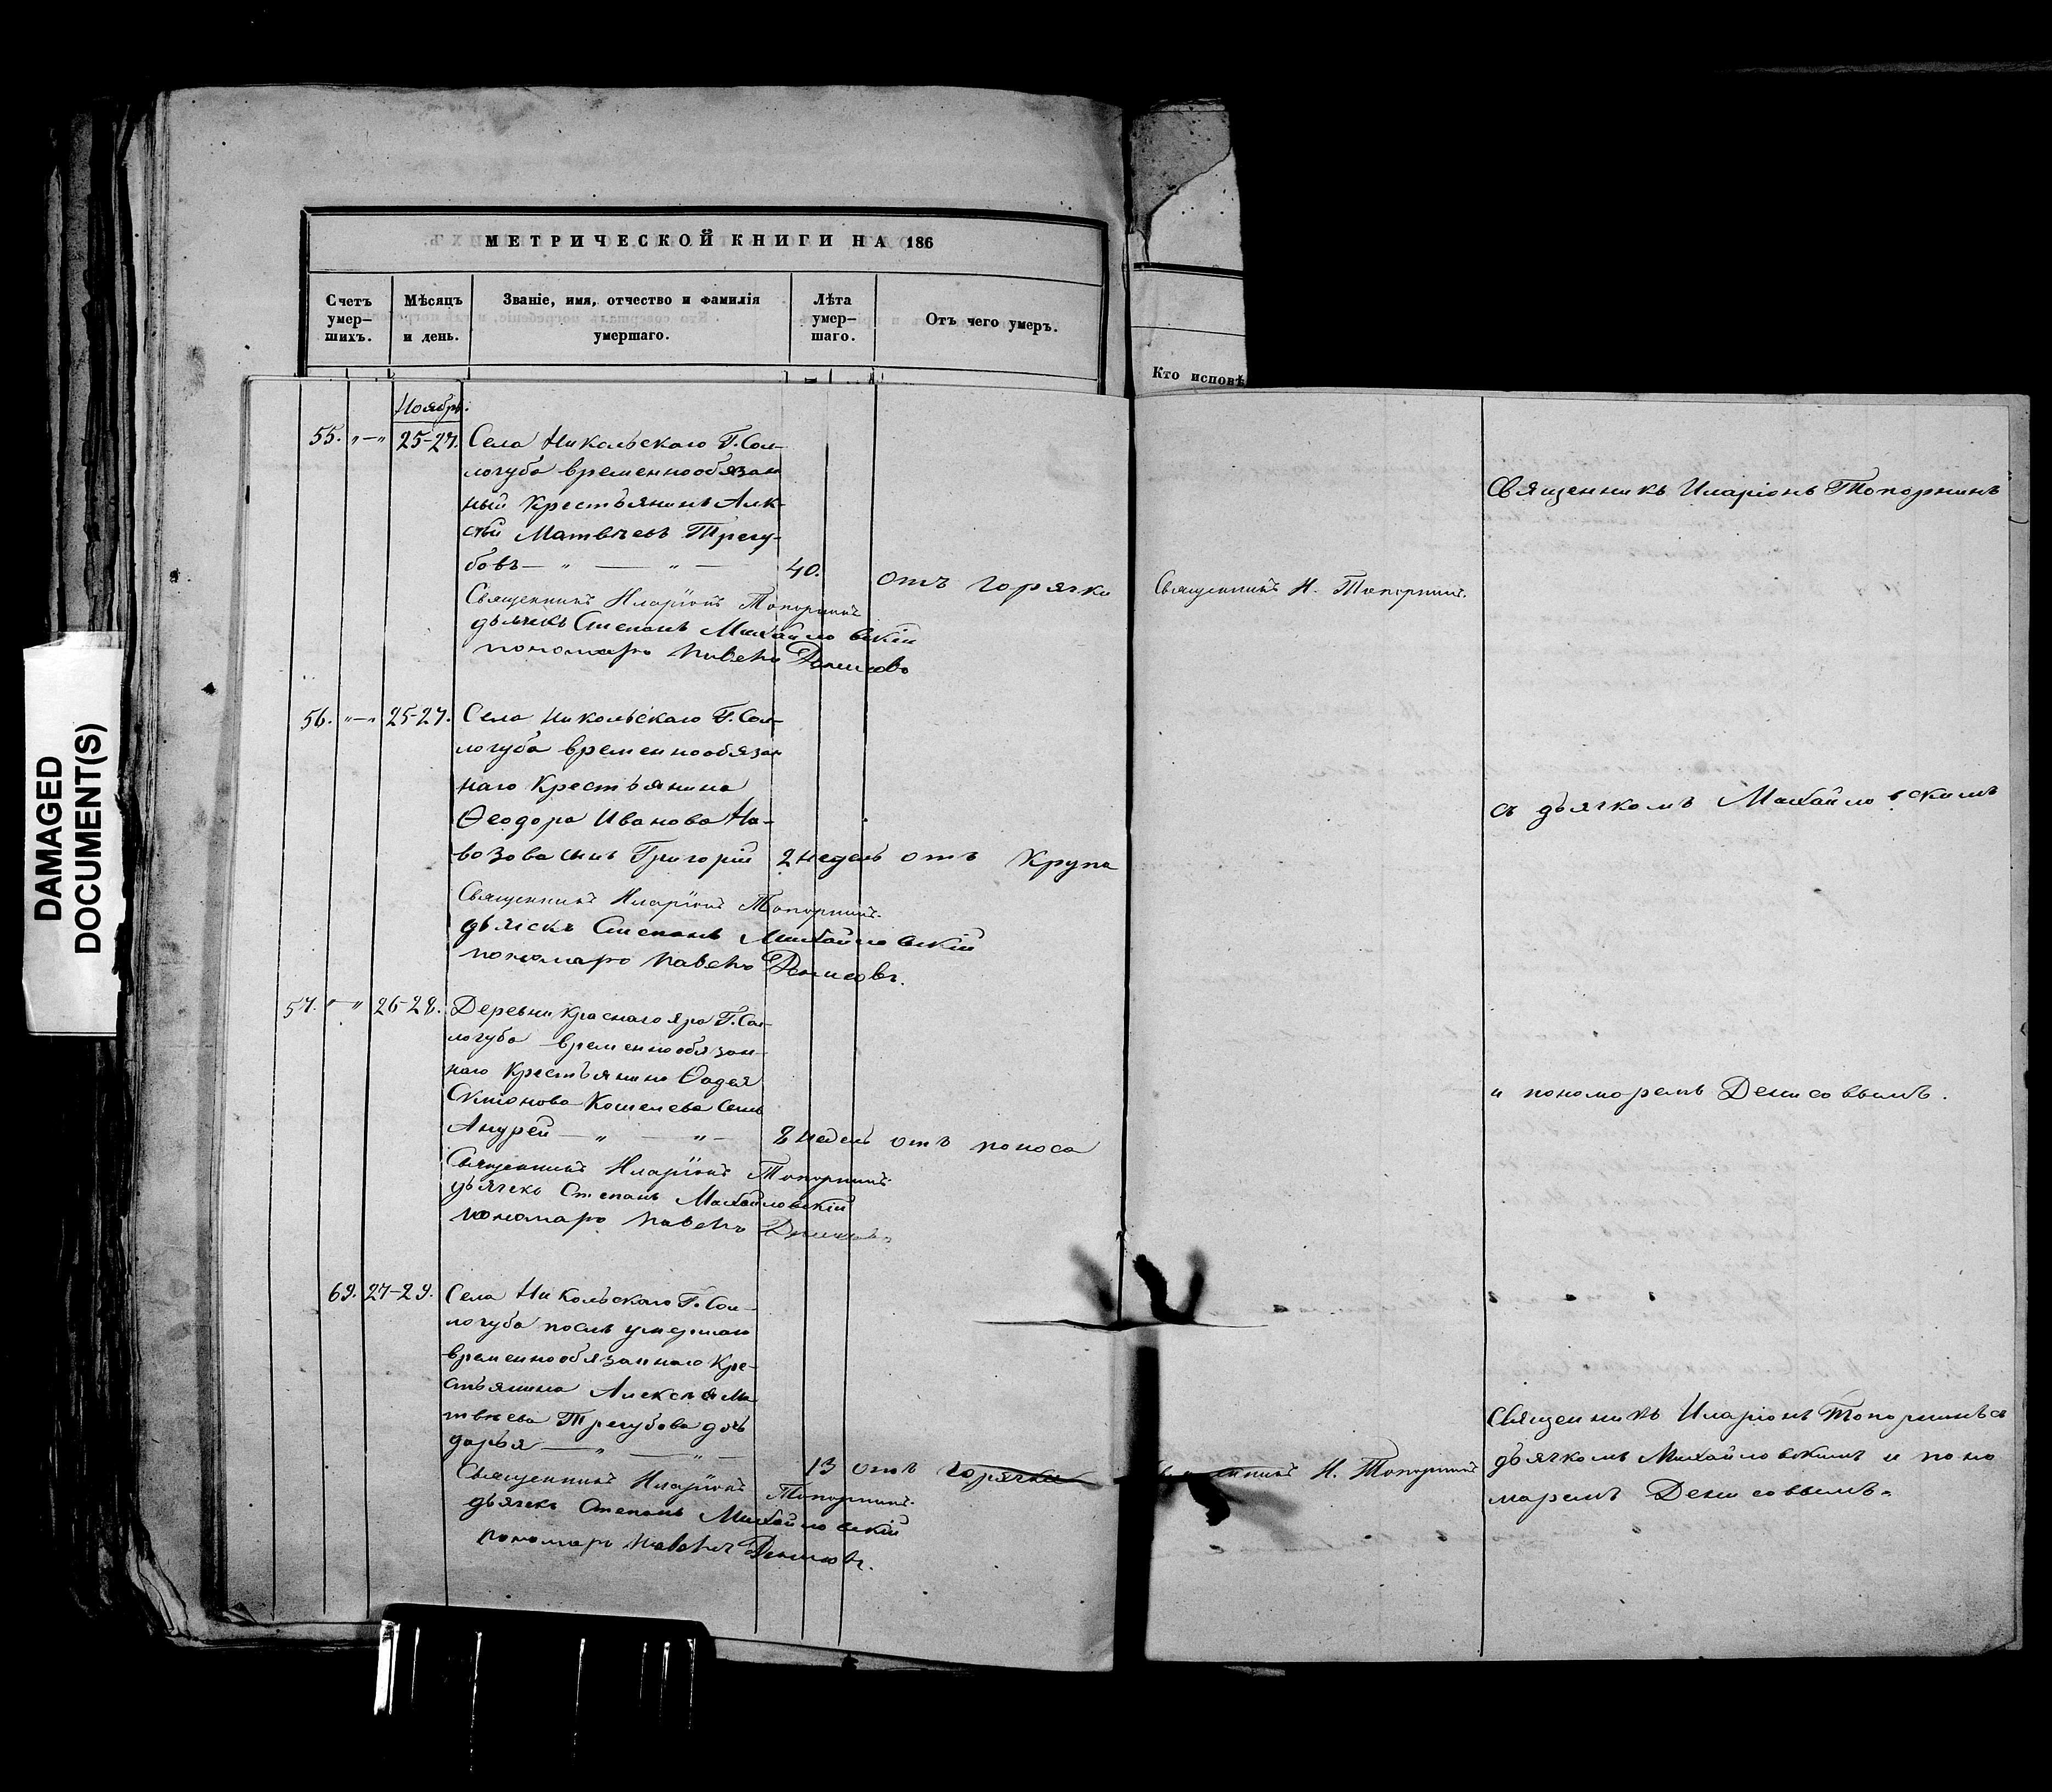 МЕТРИЧЕСКОЙ КНИГИ НА 186
Счетъ умер-шихъ.
Мѣсяцъ и день.
Званіе, имя, отчество и фамилія умершаго.
Лѣта умер-шаго.
Отъ чего умеръ.
Кто исповѣ
DAMAGED
DOCUMENT(S)
Ноябрь.
55. „—„ 25-27. Села Никольскаго Г. Сол-
логуба временнообязан
ный Крестьянинъ Алек-
сѣй Матвѣевъ Трегу-
бовъ — „ — „ — 40. отъ горячки
Священникъ Иларіонъ Топорнинъ
дьячекъ Степанъ Михайловскій
пономарь Павелъ Денисовъ
Священникъ И. Топорнинъ.
Священникъ Иларіонъ Топорнинъ
56. „—„ 25-27. Села Никольскаго Г. Сол-
логуба временнообязан
наго Крестьянина
Ѳеодора Иванова На-
возова сынъ Григорій 2 недель отъ Крупа
Священникъ Иларіонъ Топорнинъ.
дьячекъ Степанъ Михайловскій
пономарь Павелъ Денисовъ.
съ дьячкомъ Михайловскимъ
57. „—„ 26-28. Деревни Краснаго яра Г. Сол-
логуба временнообязан-
наго Крестьянина Ѳадея
Кошелева сынъ
Андрей — „ — „ — 8 недель отъ поноса
Священникъ Иларіонъ Топорнинъ
дьячекъ Степанъ Михайловскій
пономарь Павелъ Денисовъ.
и пономоремъ Денисовымъ.
69. 27-29. Села Никольскаго Г. Сол-
логуба послѣ умершаго
временнообязаннаго Кре-
стьянина Алексѣя Ма
твѣева Трегубова дочь
дарья — „ — „ — 13 отъ горячки
Священникъ Иларіонъ Топорнинъ.
дьячекъ Степанъ Михайловскій
пономарь Павелъ Денисовъ.
И. Топорнинъ
Священникъ Иларіонъ Топорнинъ съ
дьячкомъ Михайловскимъ и поно
маремъ Денисовымъ.